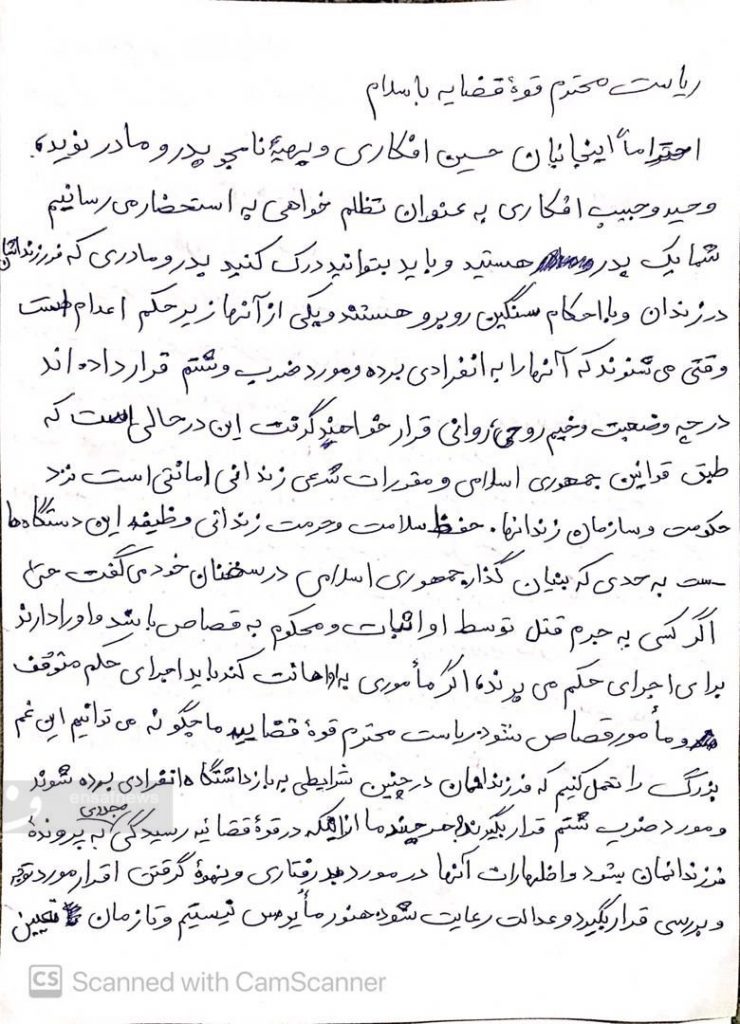 ریاست محترم قوهٔ قضایه باسلام
احتراماً اینجانبان حسین افکاری و بهیهٔ نامجو پدر و مادر نوید،
وحید و حبیب افکاری به عنوان تظلم خواهی به استحضار می رسانیم
شما یک پدر هستید و باید بتوانید درک کنید پدر و مادری که فرزندانشان
در زندان و با احکام سنگین روبرو هستند و یکی از آنها زیر حکم اعدام است
وقتی می شنوند که آنها را به انفرادی برده و مورد ضرب و شتم قرار داده اند
در چه وضعیت وخیم روحی روانی قرار خواهند گرفت این در حالی است که
طبق قوانین جمهوری اسلامی و مقررات شرعی زندانی امانتی است نزد
حکومت و سازمان زندانها. حفظ سلامت و حرمت زندانی وظیفه این دستگاه ها
ست به حدی که بنیان گذار جمهوری اسلامی در سخنان خود می گفت حتی
اگر کسی به جرم قتل توسط او اثبات و محکوم به قصاص باشد و او را دارند
برای اجرای حکم می برند، اگر مأموری به او اهانت کند باید اجرای حکم متوقف
و مأمور قصاص شود. ریاست محترم قوهٔ قضاییه ما چگونه می توانیم این غم
بزرگ را تحمل کنیم که فرزندانمان در چنین شرایطی به بازداشتگاه انفرادی برده شوند
و مورد ضرب شتم قرار بگیرند هر چند ما از اینکه در قوهٔ قضائیه رسیدگی مجددی به پروندهٔ
فرزندانمان بشود و اظهارات آنها در مورد بدرفتاری و نهوهٔ گرفتن اقرار مورد توجه
و بررسی قرار بگیرد و عدالت رعایت شود هنوز مأیوس نیستیم و تا زمان تعیین
ensafnews
CS Scanned with CamScanner